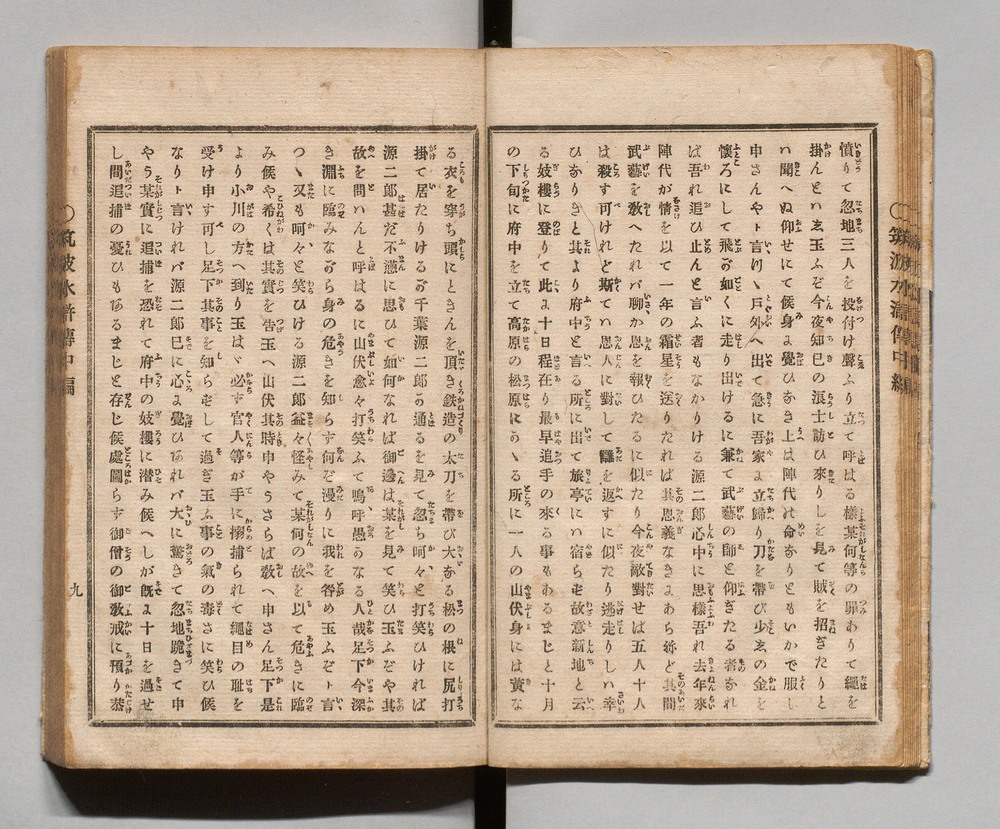 憤りて忽地三人を投付け聲ふり立て呼はる樣某何等の罪ありて繩を
掛んとハ玄玉ふぞ今夜知己の浪士訪ひ來りしを見て賊を招ぎたりと
ハ聞へぬ仰せにて候身よ覺ひなき上は陣代の命なりともいかで服し
申さんやト言ハヽ戸外へ出て急に吾家よ立歸り刀を帶び少玄の金を
懷ろにして飛が如くに走り出けるに兼て武藝の師と仰ぎたる者なれ
ば吾れ追ひ止んと言ふ者もなかりける源二郎心中に思樣吾れ去年來
陣代が情を以て一年の霜星を送りたれば其恩義なきよあら絲ど其間
武藝を敎へたれバ聊か恩を報ひたるに似たり今夜敵對せば五人十人
は殺す可けれど斯てハ恩人に對して讎を返すに似たり逃走りしハ幸
ひなりきと其より府中と言る所に出て旅亭にハ宿らせ故意新地と云
る妓樓に登りて此よ十日程在り最早追手の來る事もあるまじと十月
の下旬に府中を立て高原の松原にかヽる所に一人の山伏身には黄な
る衣を穿ち頭にときんを頂き鉄造の太刀を帶び大なる松の根に尻打
掛て居たりけるが千葉源二郎が通るを見て忽ち呵々と打笑ひければ
源二郎甚だ不審に思ひて如何なれば御邊は某を見て笑ひ玉ふぞや其
故を問ハんと呼はるに山伏愈々打笑ふて嗚呼愚なる人哉足下今深
き淵に臨みながら身の危きを知らず何ぞ漫りに我を咎め玉ふぞト言
つヽ又も呵々と笑ひける源二郎益々怪みて某何の故を以て危きに臨
み候や希くは其實を告玉へ山伏其時申やうさらば敎へ申さん足下是
より小川の方へ到り玉はヾ必ず官人等が手に搦捕られて繩目の恥を
受け申す可し足下其事を知らせして過ぎ玉ふ事の氣の毒さに笑ひ候
なりト言けれバ源二郎已に心よ覺ひあれバ大に驚きて忽地跪きて申
やう某實に追捕を恐れて府中の妓樓に潜み候へしが旣よ十日を過せ
し間追捕の憂ひもあるまじと存じ候處圖らず御僧の御敎戒に預り忝
〇筑波水滸傳中編
九